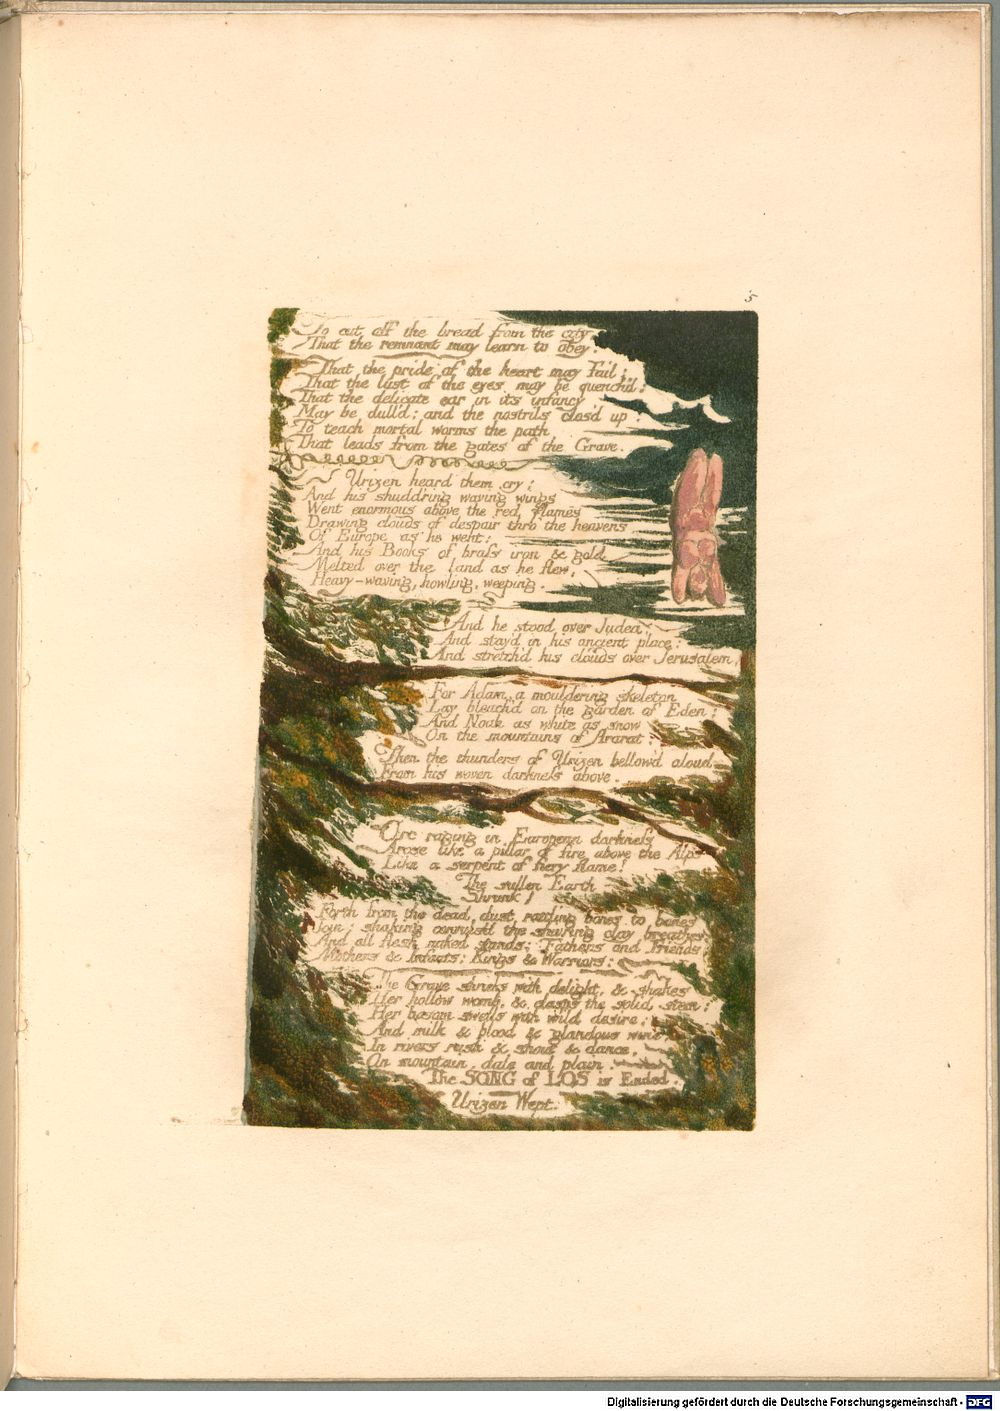 5
To cut off the bread from the city,
That the remnant may learn to obey.
That the pride of the heart may fail;
That the lust of the eyes may be quench'd:
That the delicate ear in its infancy
May be dull'd; and the nostrils clos'd up:
To teach mortal worms the path
That leads from the gates of the Grave.
Urizen heard them cry;
And his shudd'ring waving wings
Went enormous above the red flames
Drawing clouds of despair thro' the heavens
Of Europe as he went:
And his Books of brass iron & gold
Melted over the land as he flew,
Heavy-waving, howling, weeping.
And he stood over Judea:
And stay'd in his ancient place:
And stretch'd his clouds over Jerusalem;
For Adam, a mouldering skeleton
Lay bleach'd on the garden of Eden;
And Noah as white as snow
On the mountains of Ararat:
Then the thunders of Urizen bellow'd aloud
From his woven darkness above.
Orc raging in European darkness
Arose like a pillar of fire above the Alps
Like a serpent of fiery flame!
The sullen Earth
Shrunk!
Forth from the dead dust rattling bones to bones
Join: shaking convuls'd the shiv'ring clay breathes
And all flesh naked stands: Fathers and Friends;
Mothers & Infants; Kings & Warriors:
The Grave shrieks with delight, & shakes
Her hollow womb, & clasps the solid stem:
Her bosom swells with wild desire:
And milk & blood & glandous wine
In rivers rush & shout & dance,
On mountain, dale and plain.
The SONG of LOS is Ended.
Urizen Wept.
Digitalisierung gefördert durch die Deutsche Forschungsgemeinschaft - DFG